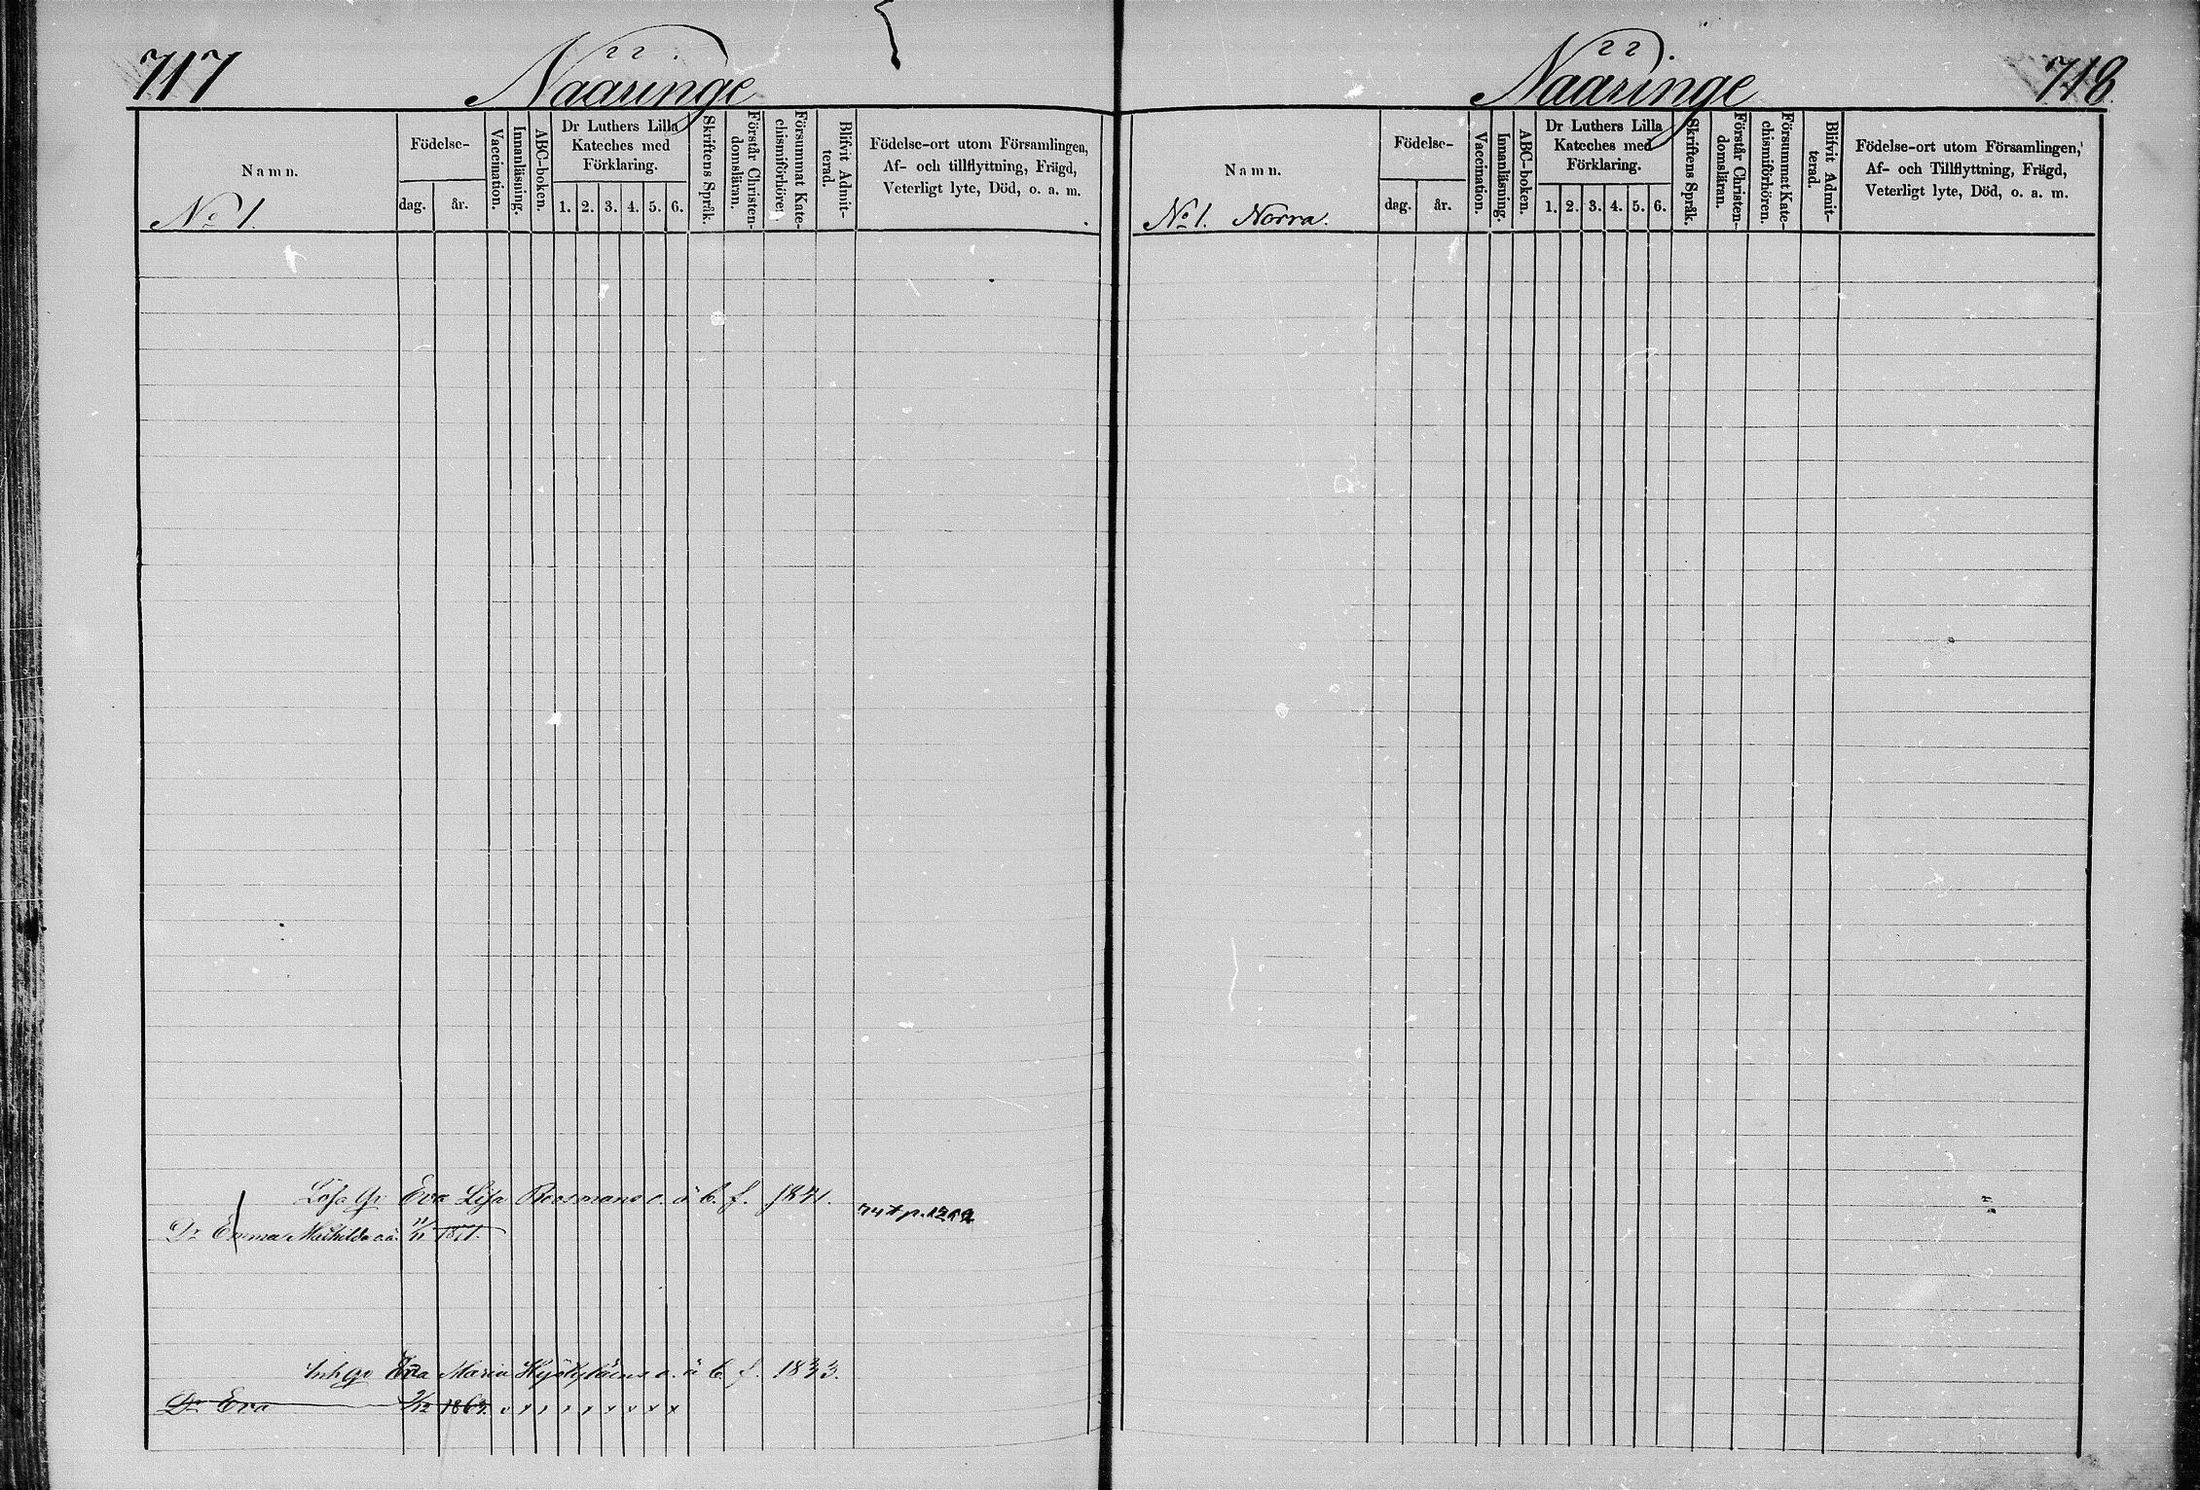 717
Nääringe
Namn.
Födelse-
dag.
år.
Vaccination.
Innanläsning.
ABC-boken.
Dr Luthers Lilla
Kateches med
Förklaring.
1. 2. 3. 4. 5. 6.
Skriftens Språk.
Förstår Christen-
domsläran.
Försummat Kate-
chismiförhören.
Blifvit Admit-
terad.
Födelse-ort utom Församlingen,
Af- och tillflyttning, Frägd,
Veterligt lyte, Död, o. a. m.
No 1.
Lösa Qv Eva Lisa Roosmans o. ä b. f. 1841.
Dr Emma Mathilda o.ä. 11/11 1871.
Inh Qv Eva Maria o. ä b. f. 1833.
Dr Eva 2/12 1863.
Nääringe
718.
Namn.
Födelse-
dag.
år.
Vaccination.
Innanläsning.
ABC-boken.
Dr Luthers Lilla
Kateches med
Förklaring.
1. 2. 3. 4. 5. 6.
Skriftens Språk.
Förstår Christen-
domsläran.
Försummat Kate-
chismiförhören.
Blifvit Admit-
terad.
Födelse-ort utom Församlingen,
Af- och Tillflyttning, Frägd,
Veterligt lyte, Död, o. a. m.
No 1. Norra.